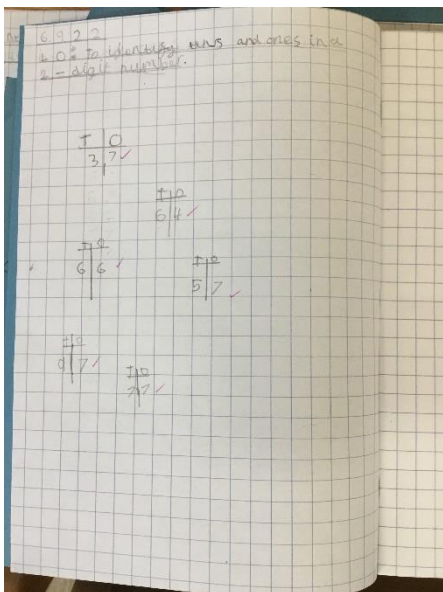 6 9 2 2
L O: To identify tens and ones in a
2 - digit number.
T O
3 7
T O
6 4
T O
6 6
T O
5 7
T O
9 7
T O
7 7